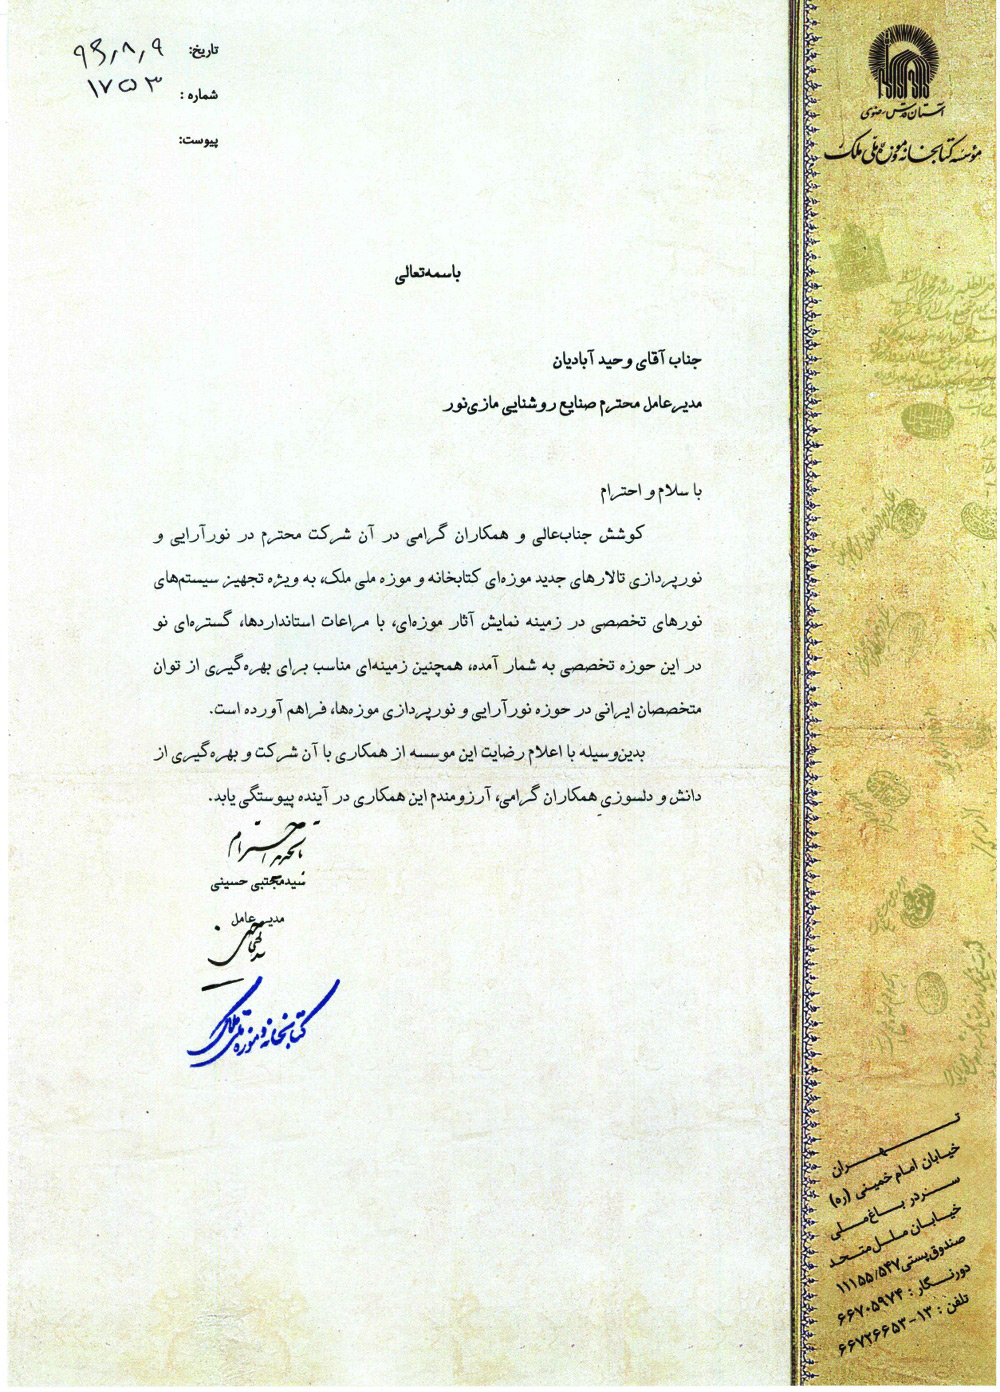 تاریخ: ۹۳٫۸٫۹
شماره: ۱۷۵۳
پیوست:
آستان قدس رضوی
مؤسسه کتابخانه و موزه ملّی ملک
باسمه‌تعالی
جناب آقای وحید آبادیان
مدیرعامل محترم صنایع روشنایی مازی‌نور
با سلام و احترام
کوشش جناب‌عالی و همکاران گرامی در آن شرکت محترم در نورآرایی و
نورپردازی تالارهای جدید موزه‌ای کتابخانه و موزه ملی ملک، به ویژه تجهیز سیستم‌های
نورهای تخصصی در زمینه نمایش آثار موزه‌ای، با مراعات استانداردها، گستره‌ای نو
در این حوزه تخصصی به شمار آمده، همچنین زمینه‌ای مناسب برای بهره‌گیری از توان
متخصصان ایرانی در حوزه نورآرایی و نورپردازی موزه‌ها، فراهم آورده است.
بدین‌وسیله با اعلام رضایت این موسسه از همکاری با آن شرکت و بهره‌گیری از
دانش و دلسوزیِ همکاران گرامی، آرزومندم این همکاری در آینده پیوستگی یابد.
سیدمجتبی حسینی
مدیرعامل
کتابخانه و موزه ملی ملک
تهران
خیابان امام خمینی (ره)
سردر باغ ملی
خیابان ملل متحد
صندوق پستی ۱۱۱۵۵/۵۴۷
دورنگار: ۶۶۷۰۵۹۷۴
تلفن: ۱۳-۶۶۷۲۶۶۵۳